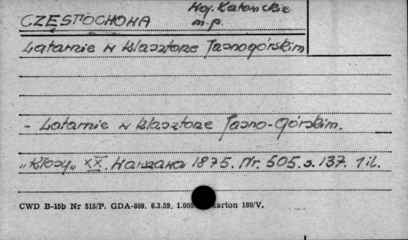 Woj. Katowickie
CZĘSTOCHOWA m.p.
Latarnie w klasztorze Jasnogórskim
- Latarnie w klasztorze Jasno-Górskim.
"Kłosy" XX. Warszawa 1875. Nr. 505. s. 137. 1 il.
CWD B-15b Nr 515/P. GDA-809. 6.3.59, 1.000 karton 180/V.